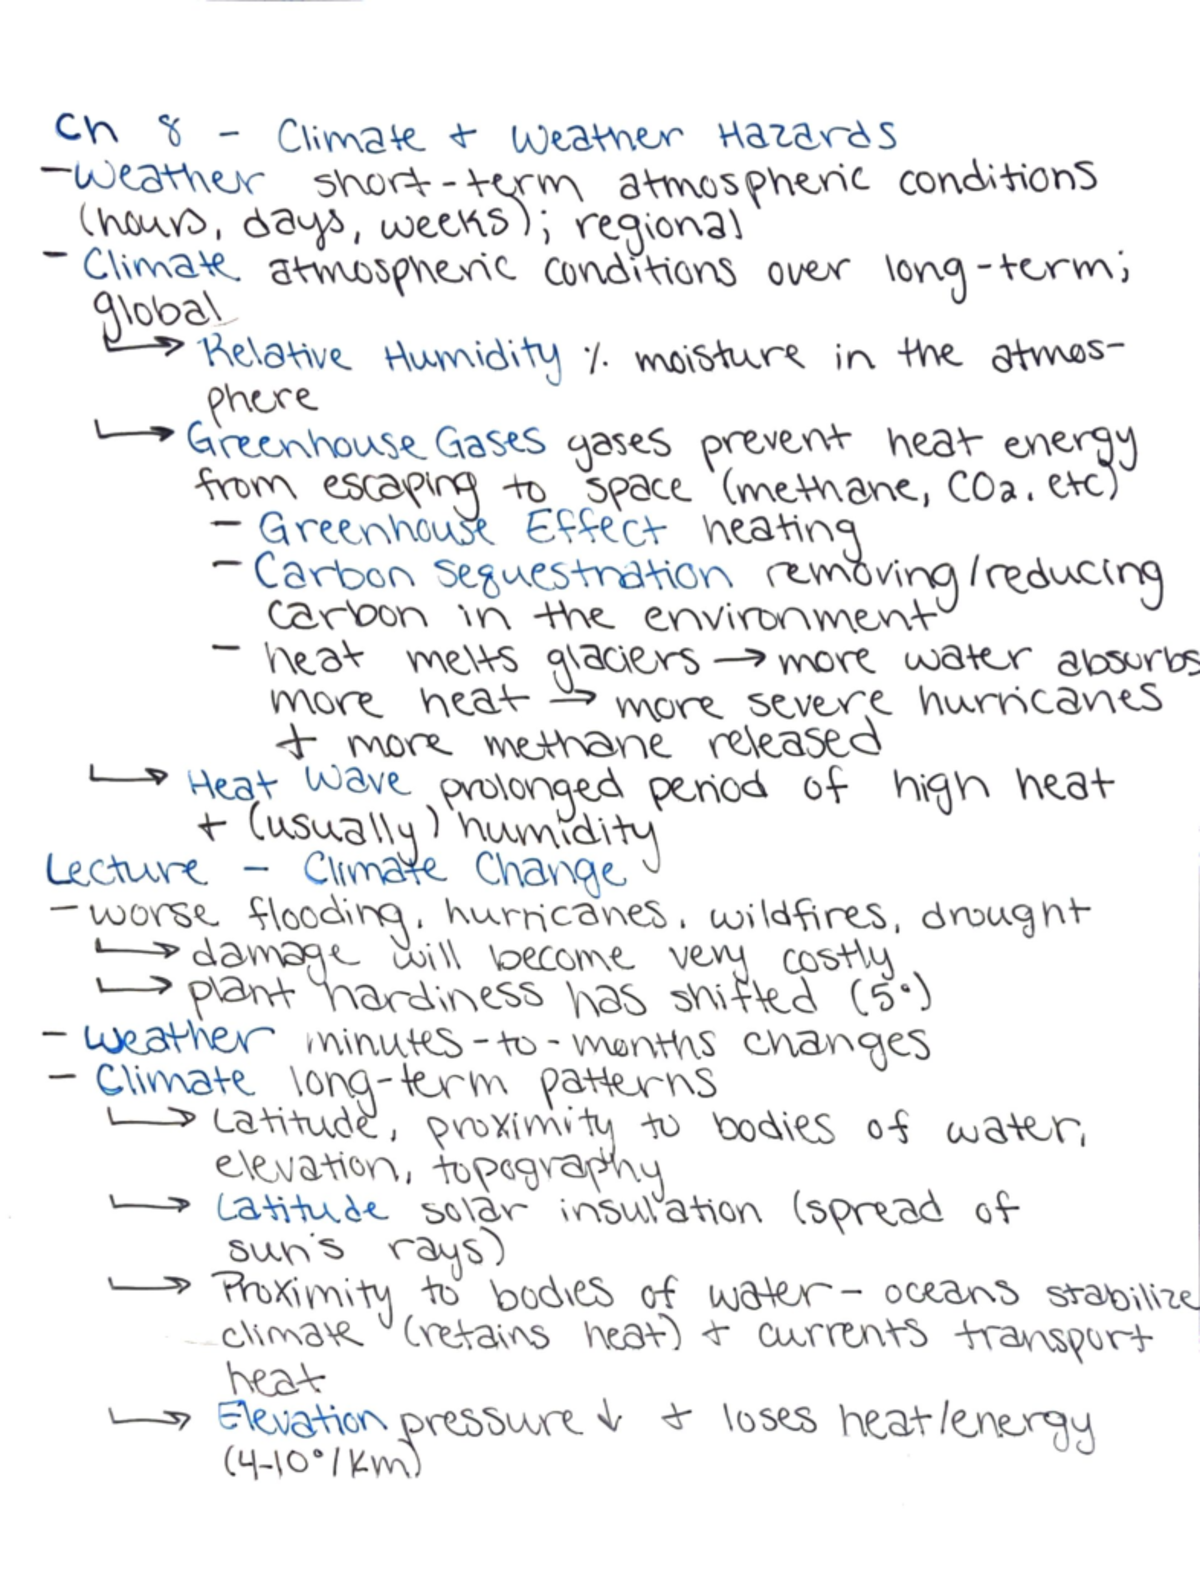 Ch 8 - Climate + Weather Hazards
- Weather short-term atmospheric conditions
(hours, days, weeks); regional
- Climate atmospheric conditions over long-term;
global
↳ Relative Humidity % moisture in the atmos-
phere
↳ Greenhouse Gases gases prevent heat energy
from escaping to space (methane, CO2, etc)
- Greenhouse Effect heating
- Carbon Sequestration removing/reducing
carbon in the environment
- heat melts glaciers → more water absorbs
more heat → more severe hurricanes
+ more methane released
↳ Heat Wave prolonged period of high heat
+ (usually) humidity
Lecture - Climate Change
- worse flooding, hurricanes, wildfires, drought
↳ damage will become very costly
↳ plant hardiness has shifted (5°)
- Weather minutes-to-months changes
- Climate long-term patterns
↳ Latitude, proximity to bodies of water,
elevation, topography
↳ Latitude solar insulation (spread of
sun's rays)
↳ Proximity to bodies of water - oceans stabilize
climate (retains heat) + currents transport
heat
↳ Elevation pressure ↓ + loses heat/energy
(4-10°/km)